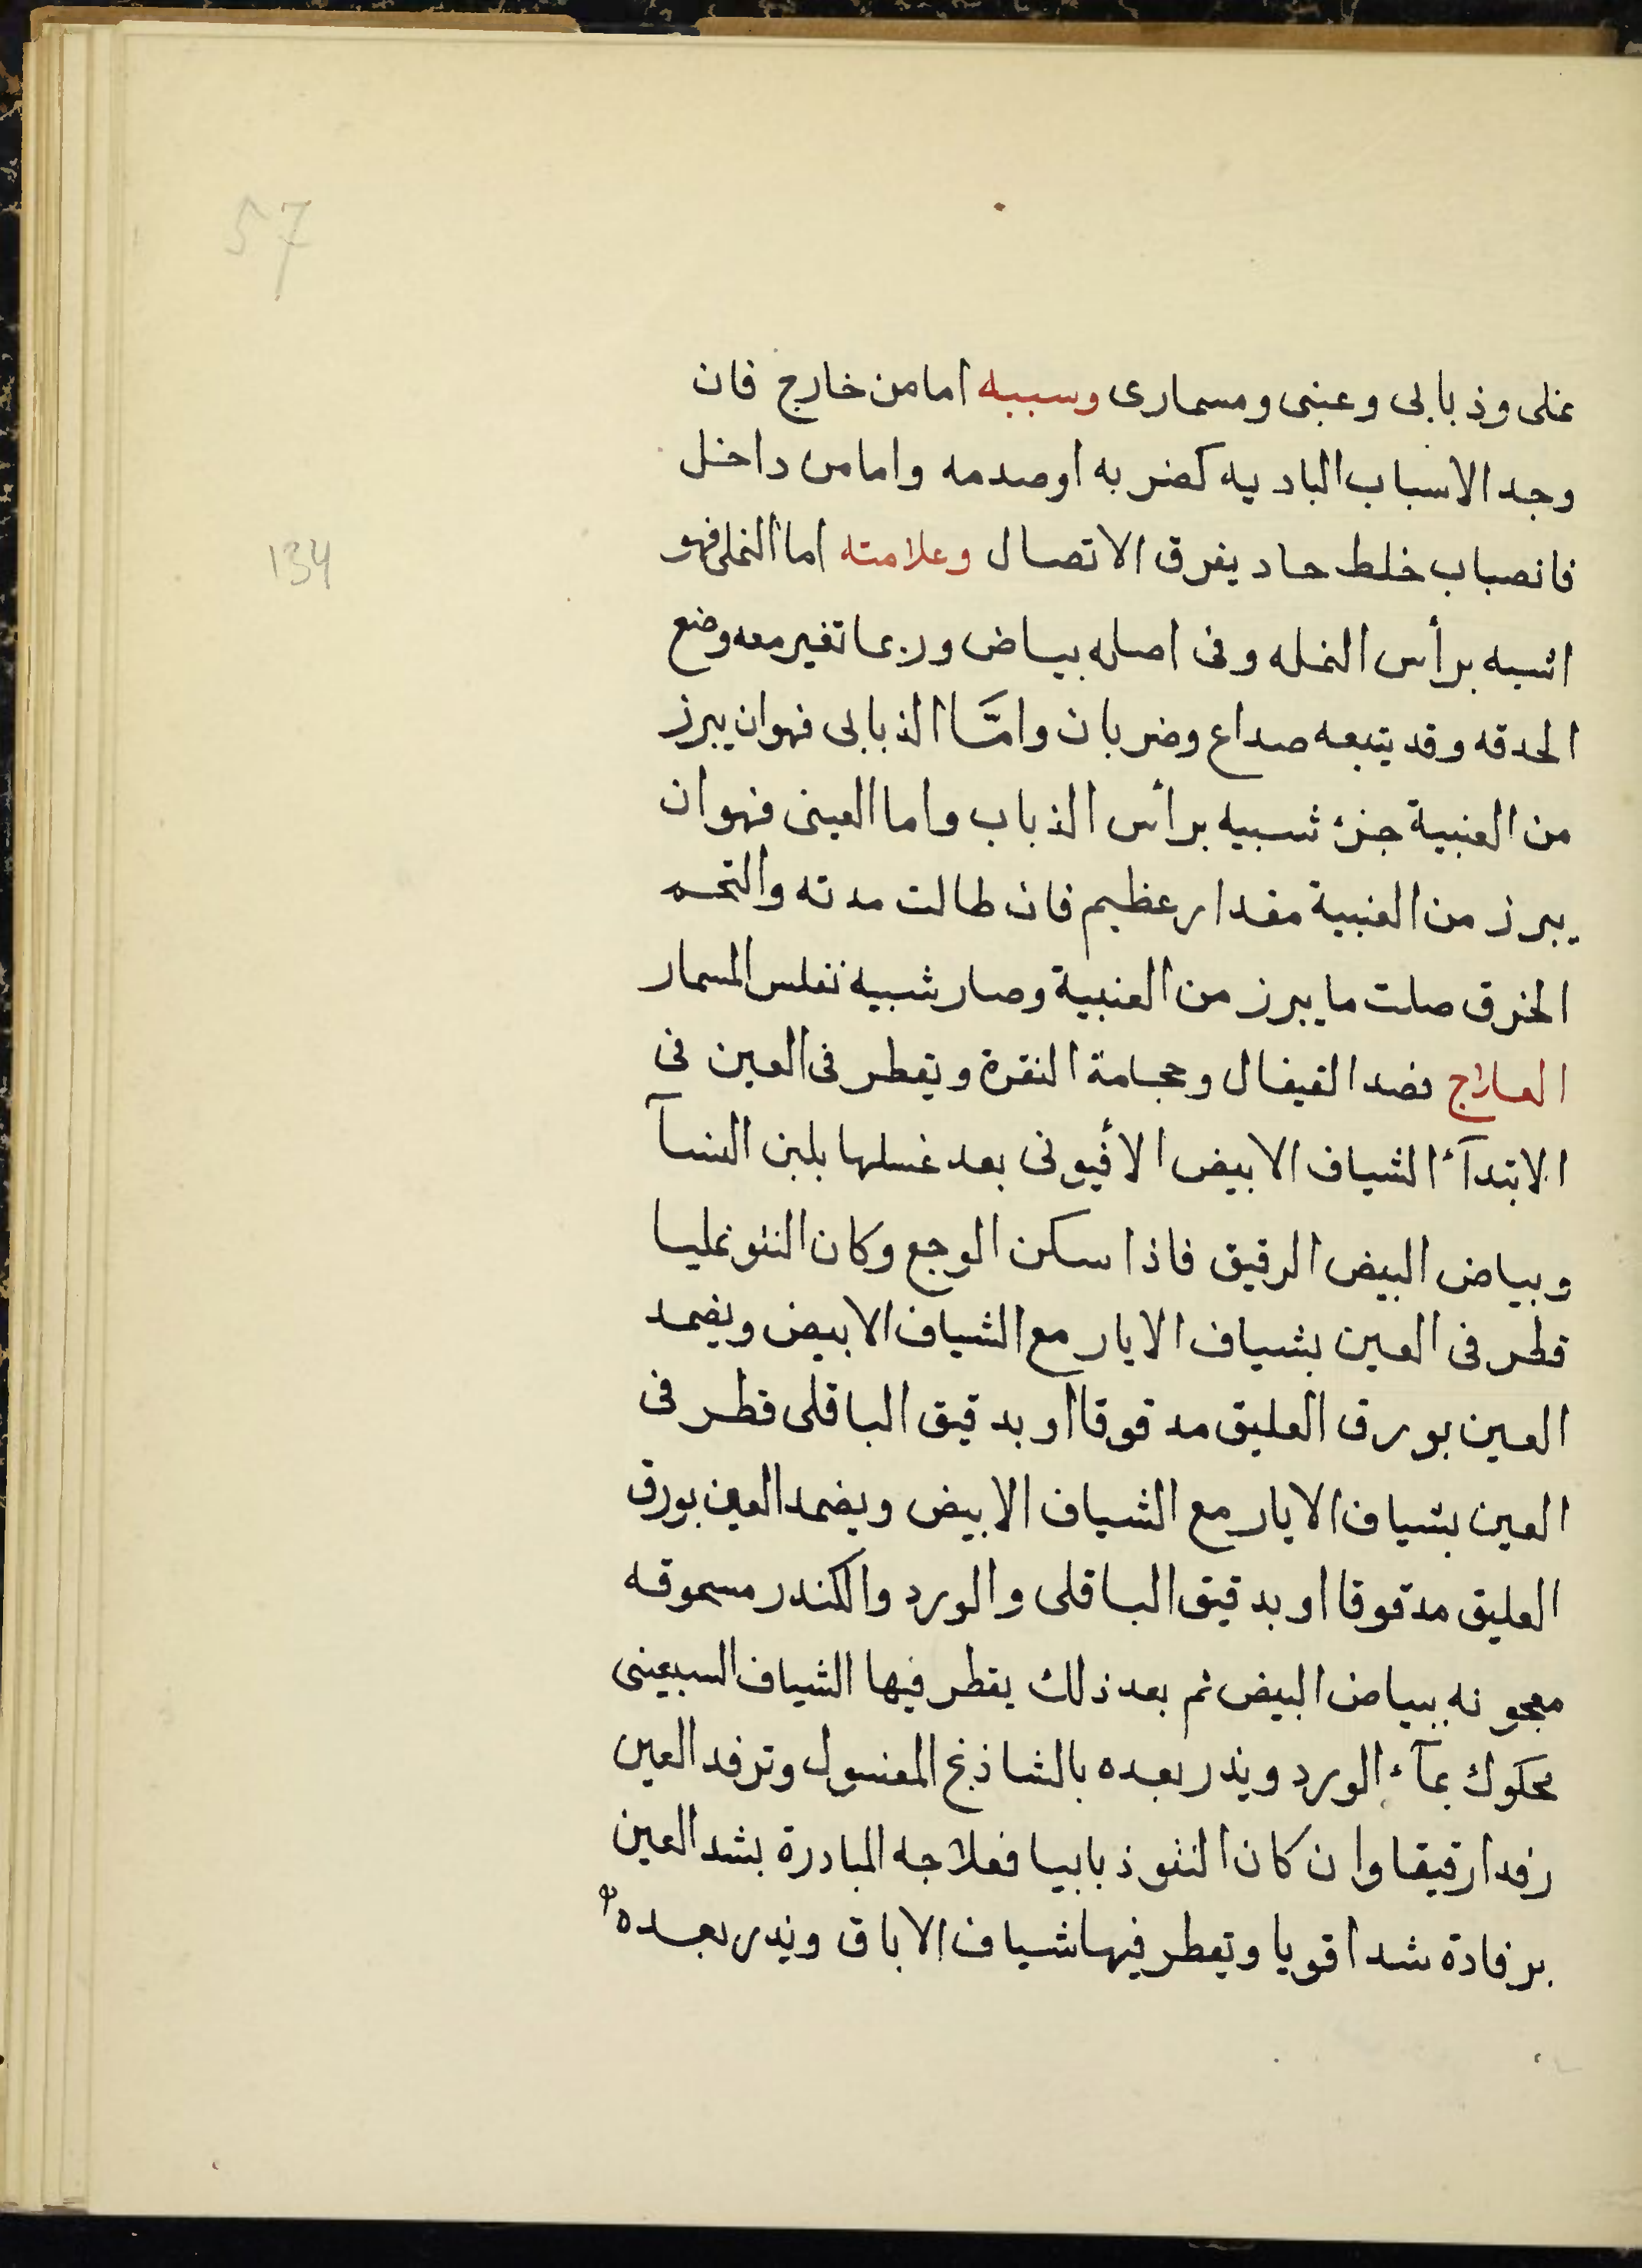 57
نملى وذبابى وعنبى ومسمارى وسببه اما من خارج فان
وجد الاسباب الباديه كضربه او صدمه واما من داخل
134
فانصباب خلط حاد يفرق الاتصال وعلامته اما النملى فهو
اشبه برأس النمله وفى اصله بياض وربما تغير معه وضع
الحدقه وقد يتبعه صداع وضربان وامّا الذبابى فهو ان يبرز
من العنبية جزء شبيه برأس الذباب واما العينى فهو ان
يبرز من العنبية مقدار عظيم فان طالت مدته والتحم
الخرق صلت ما يبرز من العنبية وصار شبيه نفلس المسمار
العلاج فصد القيفال وحجامة النقرة ويقطر فى العين فى
الابتدآء الشياف الابيض الأفيونى بعد غسلها بلبن النسآ
وبياض البيض الرقيق فاذا سكن الوجع وكان النتو نمليا
قطر فى العين بشياف الايار مع الشياف الابيض ويضمد
العين بورق العليق مدقوقا او بدقيق الباقلى قطر فى
العين بشياف الايار مع الشياف الابيض ويضمد العين بورق
العليق مدقوقا او بدقيق الباقلى والورد والكندر مسحوقه
معجونه ببياض البيض ثم بعد ذلك يقطر فيها الشياف السبيعينى
محكوك بمآء الورد ويذر بعده بالشاذنج المغسول وترفد العين
رفدا رقيقا وان كان النتو ذبابيا فعلاجه المبادرة بشد العين
برفادة شدا قويا ويقطر فيها شياف الاباق ويذر بعده